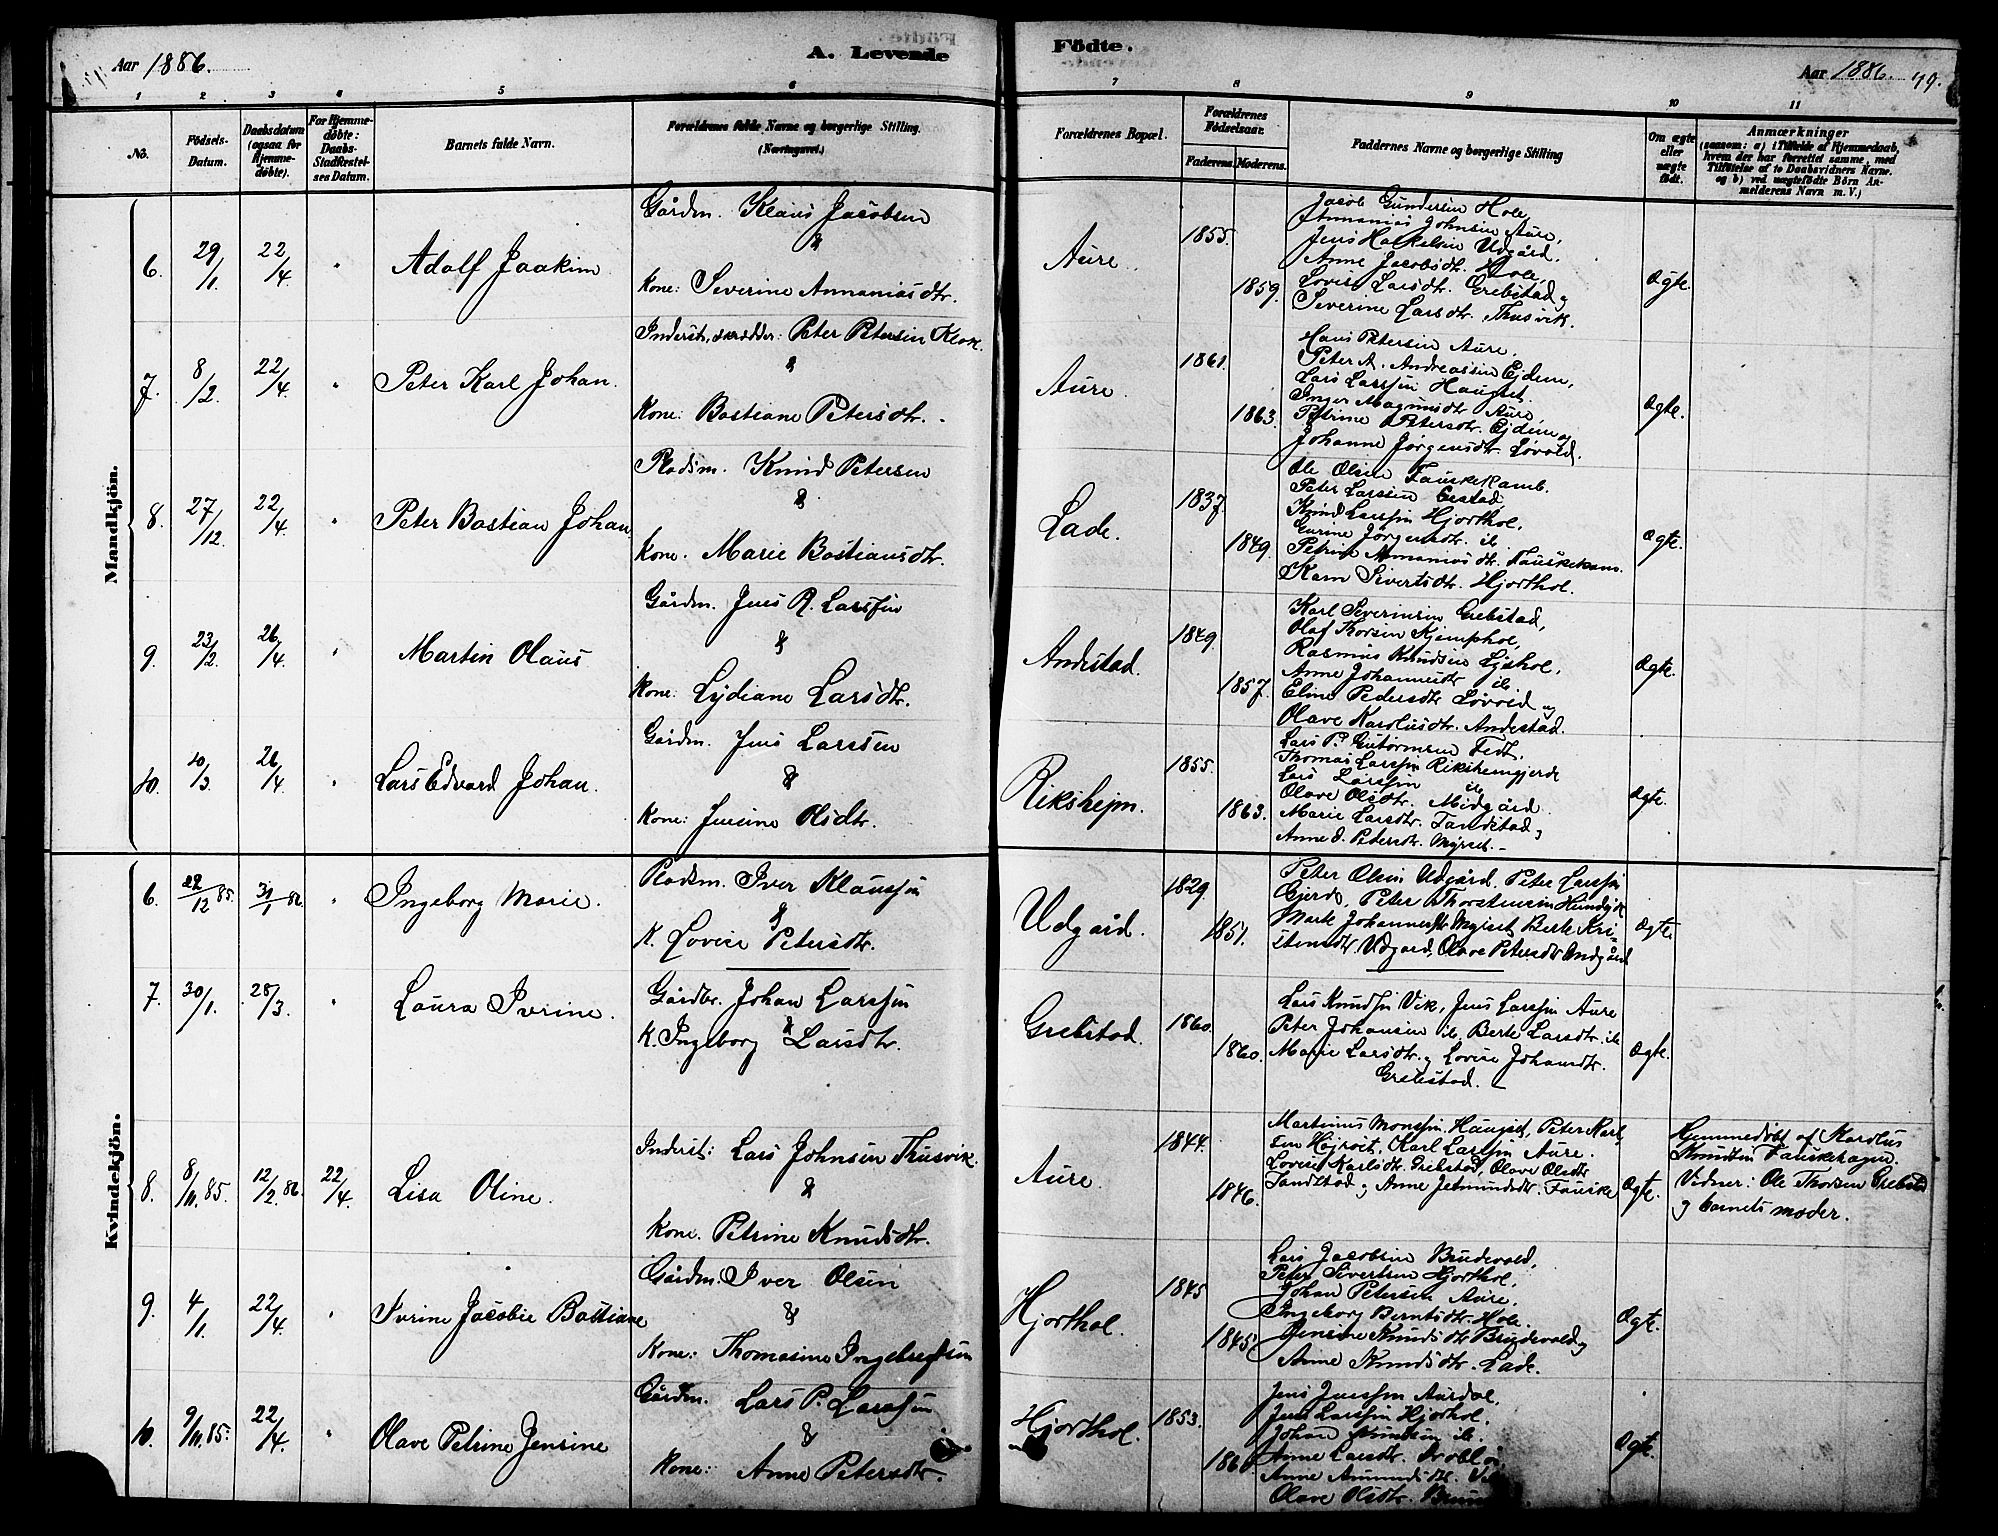 Aar 1886. A. Levende
1 2 3 4 5 6
No. Födsels-Datum. Daabsdatum (ogsaa for Hjemme-døbte). For Hjemme-døbte: Daabs-Stadfæstel-ses Datum. Barnets fulde Navn. Forældrenes fulde Navne og borgerlige Stilling. (Næringsvei.)
Födte. Aar 1886. 79.
7 8 9 10 11
Forældrenes Bopæl. Forældrenes Födselsaar. Faderens. Moderens. Faddernes Navne og borgerlige Stilling Om ægte eller uægte født. Anmærkninger (saasom: a) i Tilfælde af Hjemmedaab, hvem der har forrettet samme, med Tilföielse af to Daabsvidners Navne. og b) ved uægtefödte Börn An-melderens Navn m. V.)
Mandkjön.
6. 29/1. 22/4 " Adolf Joakim. Gårdm. Klaus Jacobsen
&
Kone: Severine Annaniasdtr.
Aure. 1855. 1859.
Jacob Gundersen Hole,
Annanias Johnsen Aure,
Jens Haskelsen Udgård.
Anne Jacobsdtr. Hole,
Lovise Larsdtr. Grebstad og
Severine Larsdtr. Thusvik.
Ægte.
7. 8/2. 22/4. " Peter Karl Johan. Inderst, skrædder: Peter Petersen Klok.
&
Kone: Bastiane Petersdtr.
Aure. 1861. 1863.
Hans Petersen Aure.
Peter A. Andreassen Ejdem,
Lars Larssen Haugset.
Inger Magnusdtr Aure,
Petrine Petersdtr. Ejdem og
Johanne Jørgensdtr Løvold.
Ægte.
8. 27/12. 22/4. " Peter Bastian Johan Pladsm. Knud Petersen
&
Kone. Marie Bastiansdtr.
Lade. 1837. 1849.
Ole Olsen Fauskekamb.
Peter Larssen Erstad,
Knud Larssen Hjorthol.
Gurine Jørgensdtr. ib
Petrine Annaniasdtr. Fauskekam.
Karn Sivertsdtr. Hjorthol.
Ægte.
9. 23/2. 26/4. " Martin Olaus Gårdm. Jens R. Larssen
&
Kone: Lydiane Larsdtr.
Andestad. 1849. 1857.
Karl Severinsen Grebstad,
Olaf Thorsen Kjemphol,
Rasmus Knudsen Lyshol,
Anne Johannesdtr ib
Eline Pedersdtr Løvold og
Olave Karolusdtr. Andestad.
Ægte.
10. 10/3. 26/4. " Lars Edvard Johan. Gårdm. Jens Larssen
&
Kone: Jensine Olsdtr.
Rikshejm. 1855. 1863.
Lars P. Gutormsen Fedt,
Thomas Larssen Rikshemgjerde
Lars Larssen ib
Olave Olsdtr. Midgård.
Marie Larsdtr. Tandstad og
Anne S. Petersdtr. Myrset.
Ægte.
Kvindekjön.
6. 29/12 85. 31/1 86. " Ingeborg Marie. Pladsm. Iver Klaussen
&
K. Lovise Petersdtr.
Udgård. 1829. 1851.
Peter Olsen Udgård. Peter Larssen
Gjerde, Peter Thorstensen Hundejde
Marte Johannesdtr Myrset, Berte Kri-
stensdtr. Udgard, Olave Petersdtr Undgård
Ægte.
7. 30/1. 28/3. " Laura Iverine. Gårdbr. Johan Larssen
&
K. Ingeborg Larsdtr.
Grebstad. 1860. 1860.
Lars Knudsen Vik, Jens Larssen Aure
Peter Johansen ib, Berte Larsdtr. ib
Marie Larsdtr. og Lovise Johansdtr.
Grebstad.
Ægte.
8. 8/11.85. 12/2 86. 22/4. Lisa Oline. Inderst: Lars Johnsen Thusvik.
&
Kone. Petrine Knudsdtr.
Aure. 1844. 1846.
Martinus Monssen Haugset, Peter Karl
sen Højvoit, Karl Larssen Aure.
Lovise Karlsdtr. Grebstad, Olave Olsdtr
Tandstad og Anne Jetmundsdtr. Fauske
Ægte.
Hjemmedøbt af Karolus
Knudsen Fauskehagen.
Vidner: Ole Thorsen Grebstad
og barnets moder.
9. 4/1. 22/4. " Ivrine Jacobie Bastiane Gårdm. Iver Olsen
&
Kone: Thomasine Ingebregtsen
Hjorthol. 1845 1845
Lars Jacobsen Brudevold,
Peter Sivertsen Hjorthol.
Johan Petersen Aure.
Ingeborg Berntsdtr. Hole.
Jensine Knudsdtr Brudevold og
Anne Knudsdtr. Lade.
Ægte.
10. 9/11.85. 22/4. " Olave Petrine Jensine Gårdm. Lars P. Larssen
&
Kone: Anne Petersdtr.
Hjorthol. 1853. 186
Jens Jenssen Aurdal,
Jens Larssen Hjorthol.
Johan Knudsen ib.
Anne Larsdtr.
Anne Amundsdtr.
Olave Olsdtr.
Ægte.